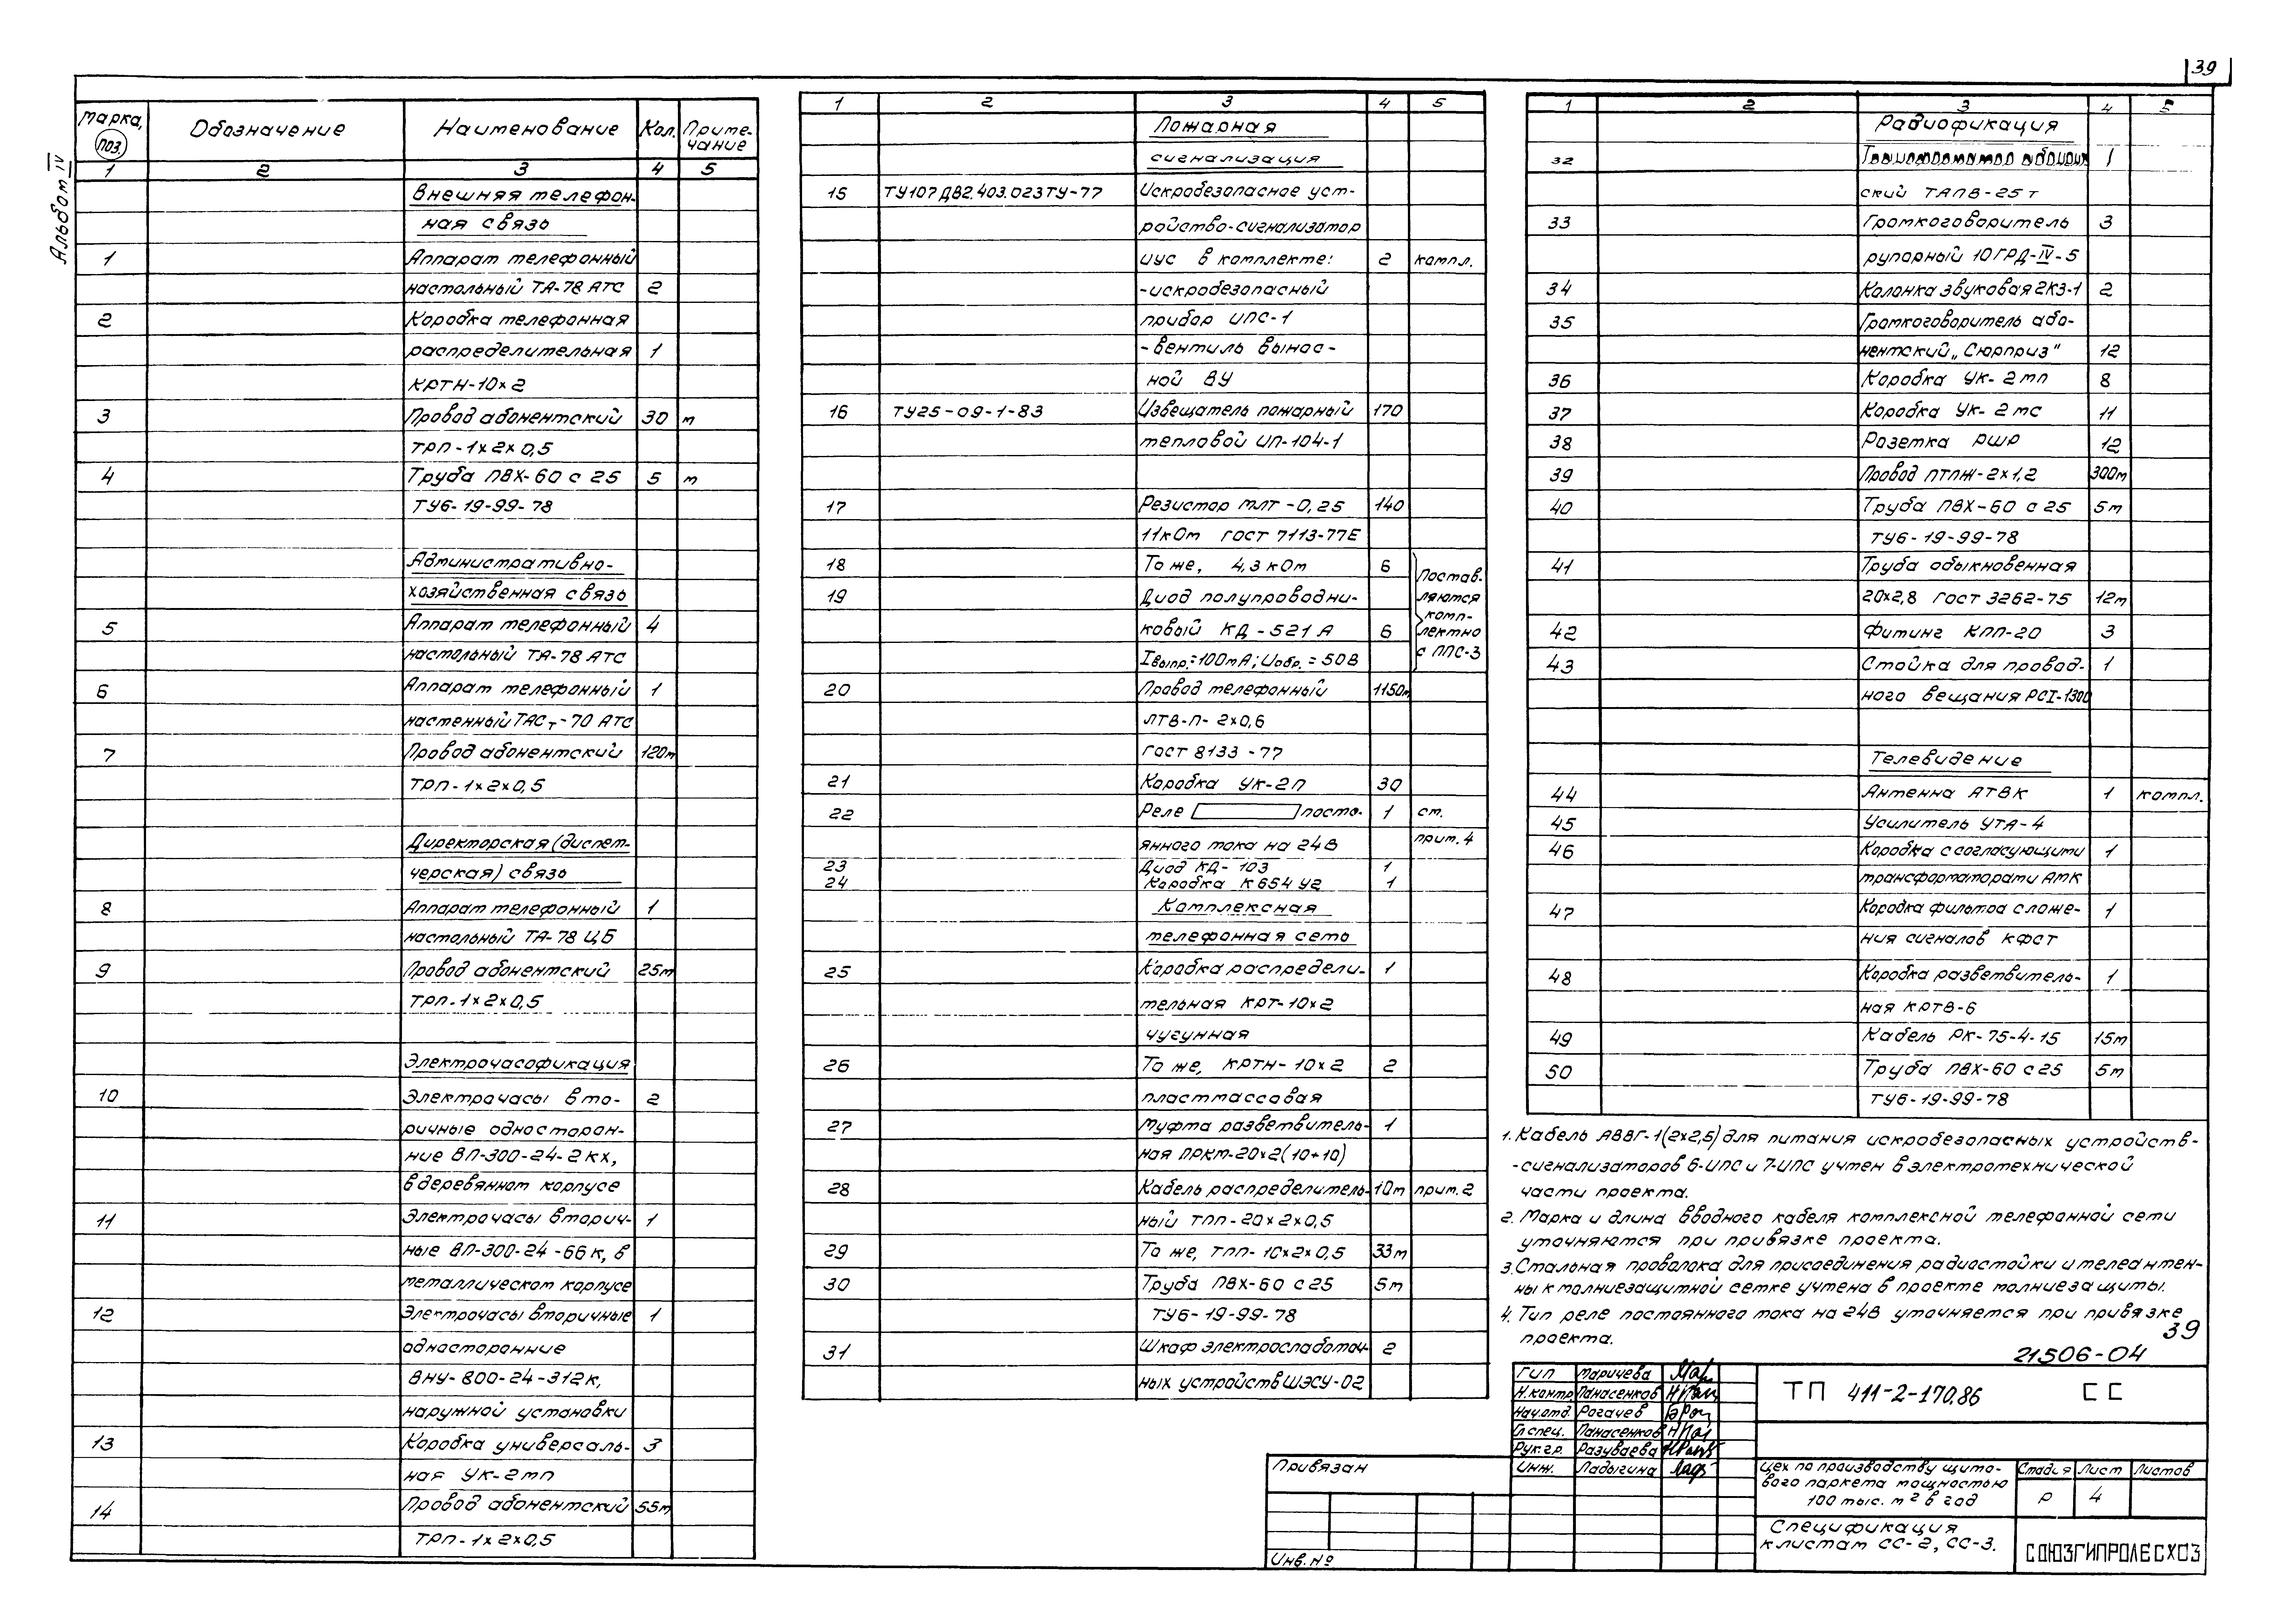 39
Альбом IV
Марка, поз. Обозначение Наименование Кол. Примечание
1 2 3 4 5
Внешняя телефон-
ная связь
1 Аппарат телефонный
настольный ТА-78 АТС 2
2 Коробка телефонная
распределительная 1
КРТН-10х2
3 Провод абонентский 30 м
ТРП-1х2х0,5
4 Труба ПВХ-60 с 25 5 м
ТУ6-19-99-78
Административно-
хозяйственная связь
5 Аппарат телефонный 4
настольный ТА-78 АТС
6 Аппарат телефонный 1
настенный ТАСт-70 АТС
7 Провод абонентский 120м
ТРП-1х2х0,5
Директорская (диспет-
черская) связь
8 Аппарат телефонный 1
настольный ТА-78 ЦБ
9 Провод абонентский 25м
ТРП-1х2х0,5
Электрочасофикация
10 Электрочасы вто- 2
ричные односторон-
ние ВП-300-24-2кх,
в деревянном корпусе
11 Электрочасы вторич- 1
ные ВП-300-24-66к, в
металлическом корпусе
12 Электрочасы вторичные 1
односторонние
ВНУ-800-24-312к,
наружной установки
13 Коробка универсаль- 3
ная УК-2мп
14 Провод абонентский 55м
ТРП-1х2х0,5
1 2 3 4 5
Пожарная
сигнализация
15 ТУ107ДВ2.403.023ТУ-77 Искробезопасное уст-
ройство-сигнализатор
иус в комплекте: 2 компл.
-искробезопасный
прибор ИПС-1
-вентиль вынос-
ной ВУ
16 ТУ25-09-1-83 Извещатель пожарный 170
тепловой ИП-104-1
17 Резистор МЛТ-0,25 140
11кОм ГОСТ 7113-77Е
18 То же, 4,3 кОм 6
19 Диод полупроводни-
ковый КД-521 А 6
Iвыпр.=100mA; Uобр.=50В
Постав-
ляются
комп-
лектно
с ППС-3
20 Провод телефонный 1150м
ЛТВ-П-2х0,6
ГОСТ 8133-77
21 Коробка УК-2П 30
22 Реле посто- 1 см.
янного тока на 24В прим. 4
23 Диод КД-103 1
24 Коробка К654 У2 1
Комплексная
телефонная сеть
25 Коробка распредели- 1
тельная КРТ-10х2
чугунная
26 То же, КРТН-10х2 2
пластмассовая
27 Муфта разветвитель- 1
ная ПРКМ-20х2(10+10)
28 Кабель распределитель- 10м прим. 2
ный ТПП-20х2х0,5
29 То же, ТПП-10х2х0,5 33м
30 Труба ПВХ-60 с 25 5м
ТУ6-19-99-78
31 Шкаф электрослаботоч- 2
ных устройств ШЭСУ-02
1 2 3 4 5
Радиофикация
32 1
ский ТАПВ-25т
33 Громкоговоритель 3
рупорный 10ГРД-IV-5
34 Колонка звуковая 2КЗ-1 2
35 Громкоговоритель або-
нентский „Сюрприз" 12
36 Коробка УК-2мп 8
37 Коробка УК-2мс 11
38 Розетка РШР 12
39 Провод ПТПЖ-2х1,2 300м
40 Труба ПВХ-60 с 25 5м
ТУ6-19-99-78
41 Труба обыкновенная
20х2,8 ГОСТ 3262-75 12м
42 Фитинг КПП-20 3
43 Стойка для провод- 1
ного вещания РСI-1300
Телевидение
44 Антенна АТВК 1 компл.
45 Усилитель УТА-4
46 Коробка с согласующими 1
трансформаторами АМК
47 Коробка фильтра сложе- 1
ния сигналов КФСТ
48 Коробка разветвитель- 1
ная КРТВ-6
49 Кабель РК-75-4-15 15м
50 Труба ПВХ-60 с 25 5м
ТУ6-19-99-78
1. Кабель АВВГ-1(2х2,5) для питания искробезопасных устройств-
-сигнализаторов 6-ИПС и 7-ИПС учтен в электротехнической
части проекта.
2. Марка и длина вводного кабеля комплексной телефонной сети
уточняются при привязке проекта.
3. Стальная проволока для присоединения радиостойки и телеантен-
ны к молниезащитной сетке учтена в проекте молниезащиты.
4. Тип реле постоянного тока на 24В уточняется при привязке
проекта.
39
21506-04
ГИП Маричева
Н.контр. Панасенков
Нач.отд. Рогачев
Гл.спец. Панасенков
Рук.гр. Разуваева
Инж. Ладыгина
ТП 411-2-170.86 СС
Привязан
Инв. №
Цех по производству щито-
вого паркета мощностью
100 тыс. м² в год
Стадия Лист Листов
Р 4
Спецификация
к листам СС-2, СС-3.
СОЮЗГИПРОЛЕСХОЗ